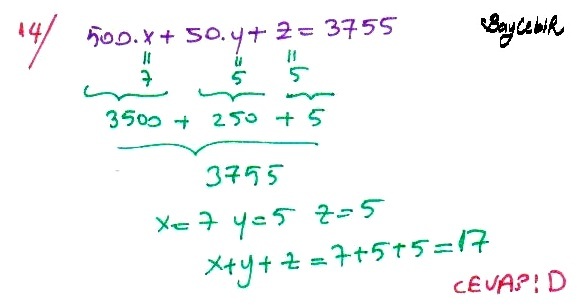 14/ 500.x + 50.y + z = 3755 BayCebiR
7 5 5
3500 + 250 + 5
3755
x=7 y=5 z=5
x+y+z=7+5+5=17
CEVAP! D